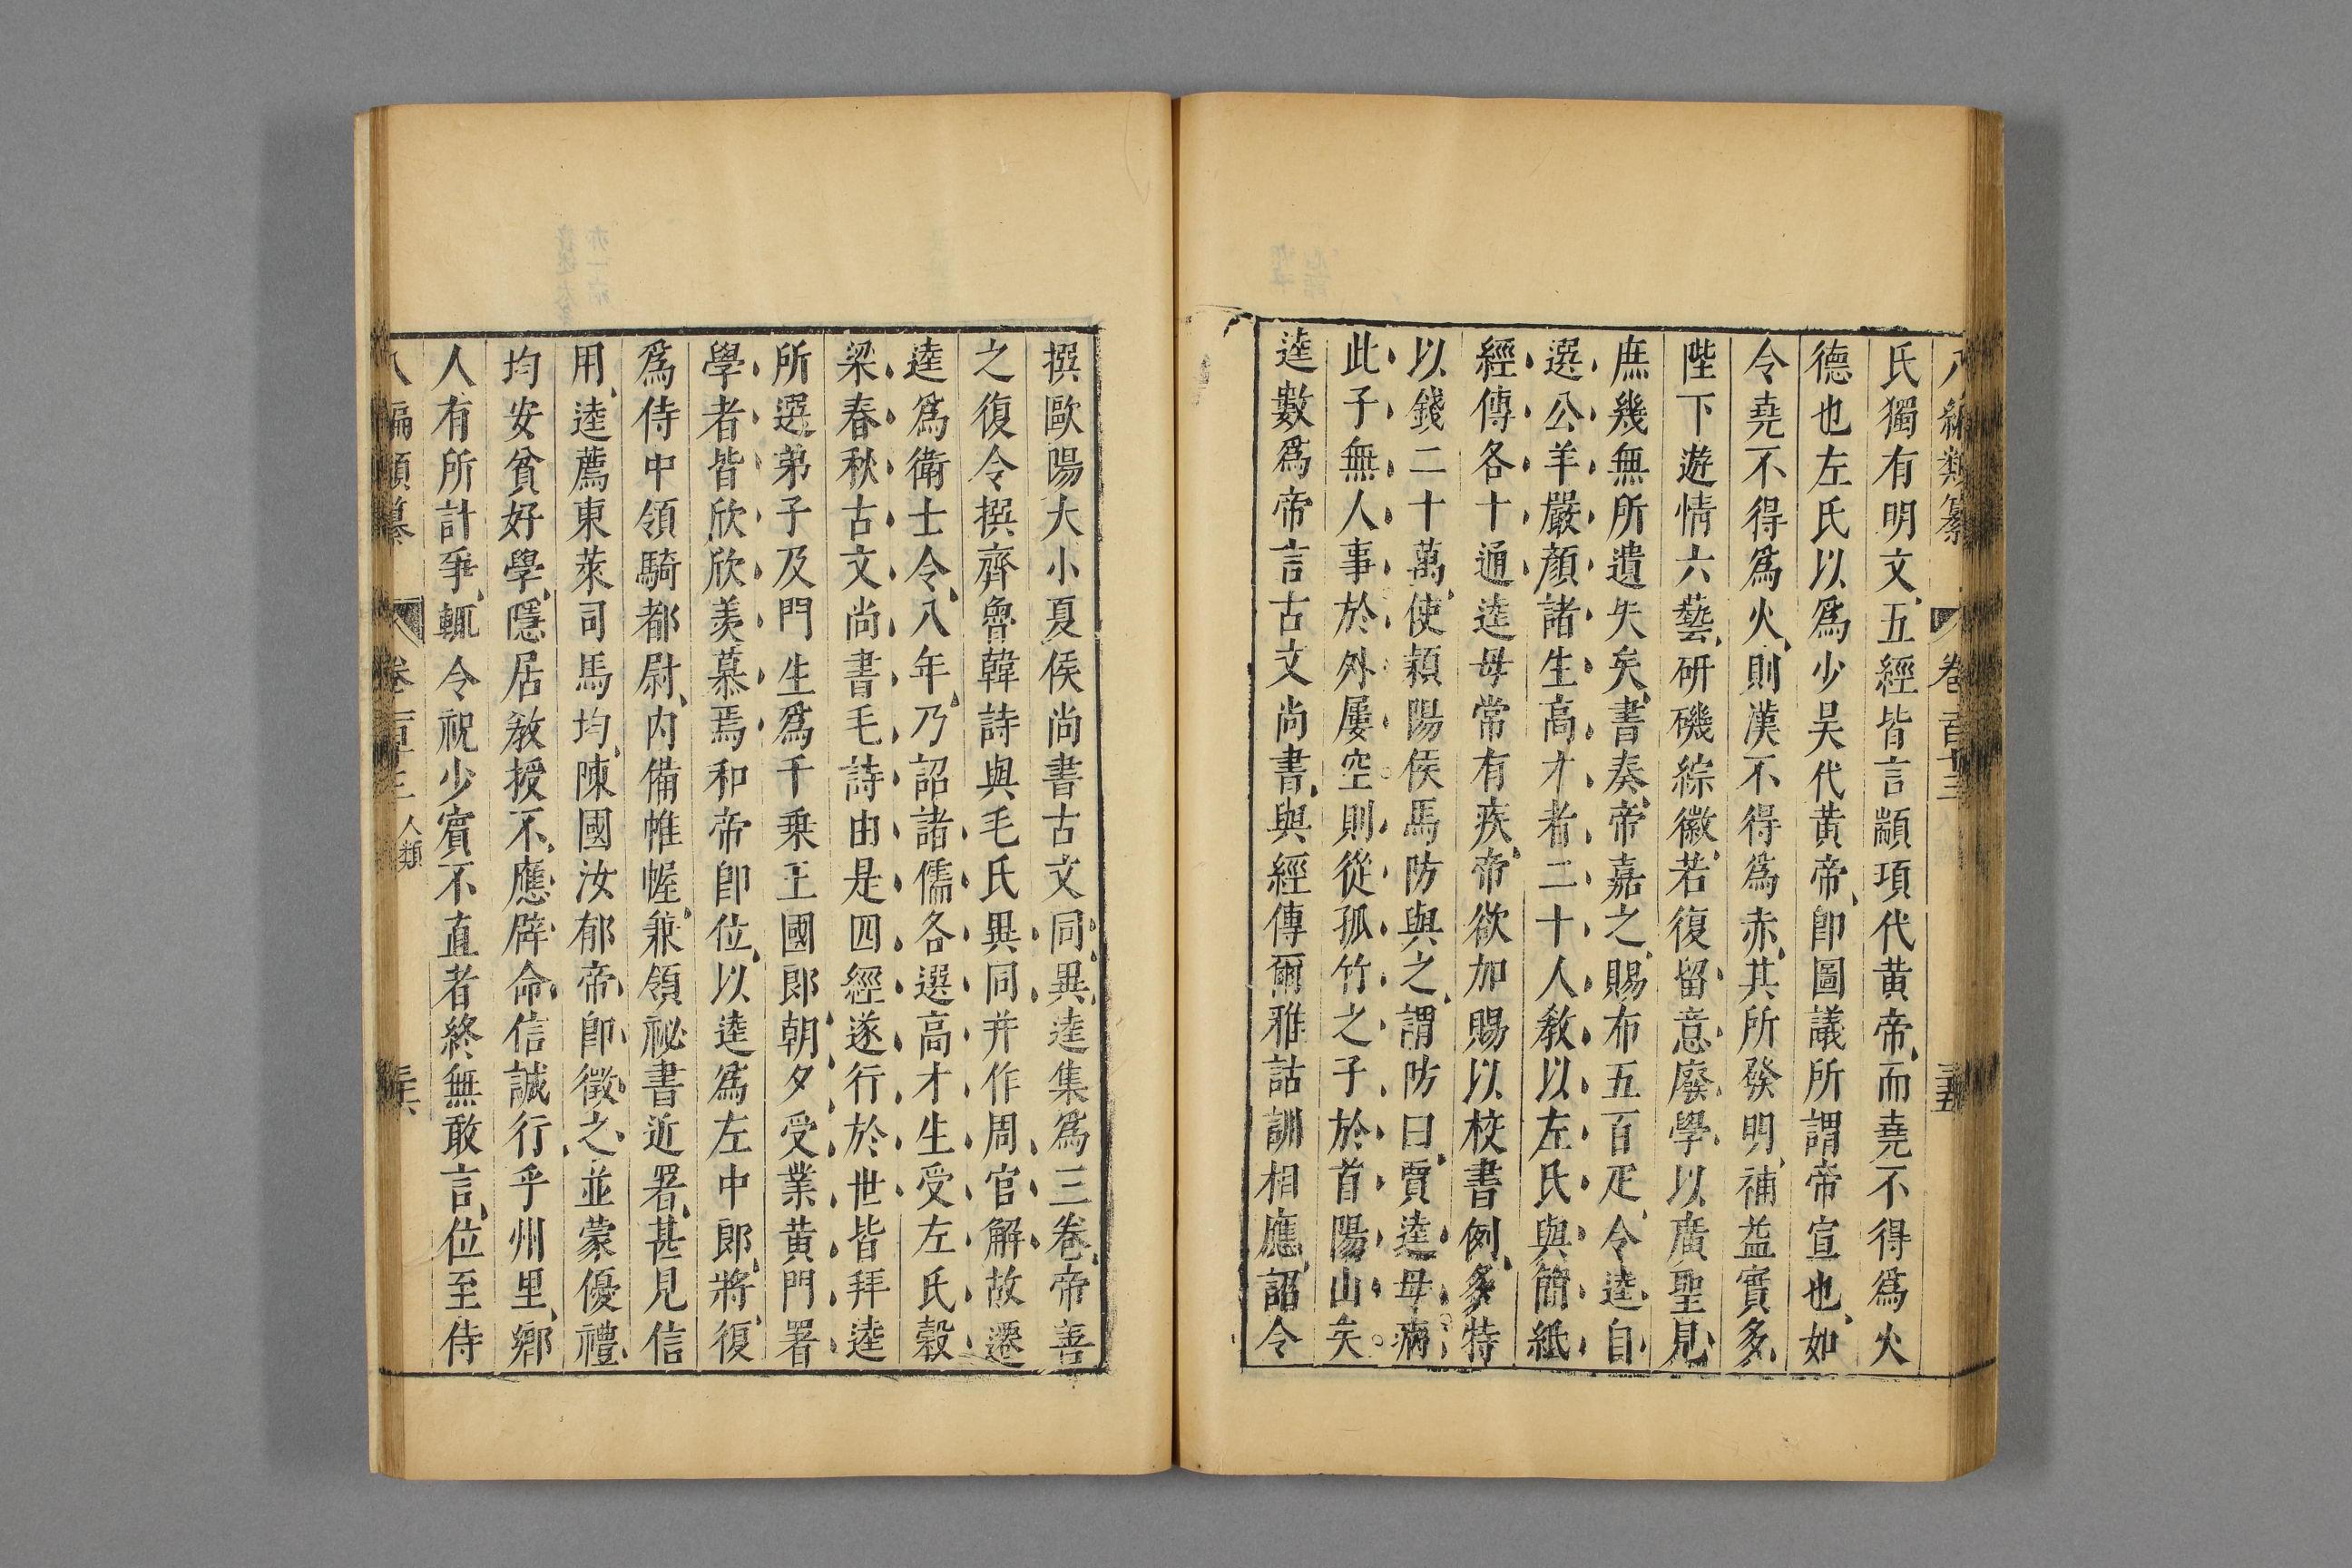 八編類纂 卷百十三 三十五
氏獨有明文五經皆言顓項代黃帝而堯不得爲火
德也左氏以爲少吴代黃帝卽圖議所謂帝宣也如
令堯不得爲火則漢不得爲赤其所發明補益實多
陛下遊情六藝研磯綜微若復留意廢學以廣聖見
庶幾無所遺失矣書奏帝嘉之賜布五百疋令逵自
選公羊嚴顏諸生高才者二十人教以左氏與簡紙
經傳各十通逵母常有疾帝欲加賜以校書例多特
以錢二十萬使穎陽侯馬防與之謂防曰賈逵母病
此子無人事於外屢空則從孤竹之子於首陽山矣
逵數爲帝言古文尚書與經傳爾雅詁訓相應詔令
撰歐陽大小夏侯尚書古文同異逵集爲三卷帝善
之復令撰齊魯韓詩與毛氏異同并作周官解故遷
逵爲衛士令八年乃詔諸儒各選高才生受左氏穀
梁春秋古文尚書毛詩由是四經遂行於世皆拜逵
所選弟子及門生爲千乘王國郎朝夕受業黃門署
學者皆欣欣羨慕焉和帝卽位以逵爲左中郎將復
爲侍中領騎都尉內備帷幄兼領祕書近署甚見信
用逵薦東萊司馬均陳國汝郁帝卽徵之並蒙優禮
均安貧好學隱居教授不應辟命信誠行乎州里鄉
人有所計爭輒令祝少賓不直者終無敢言位至侍
八編類纂 卷一百十三 人類 三十六